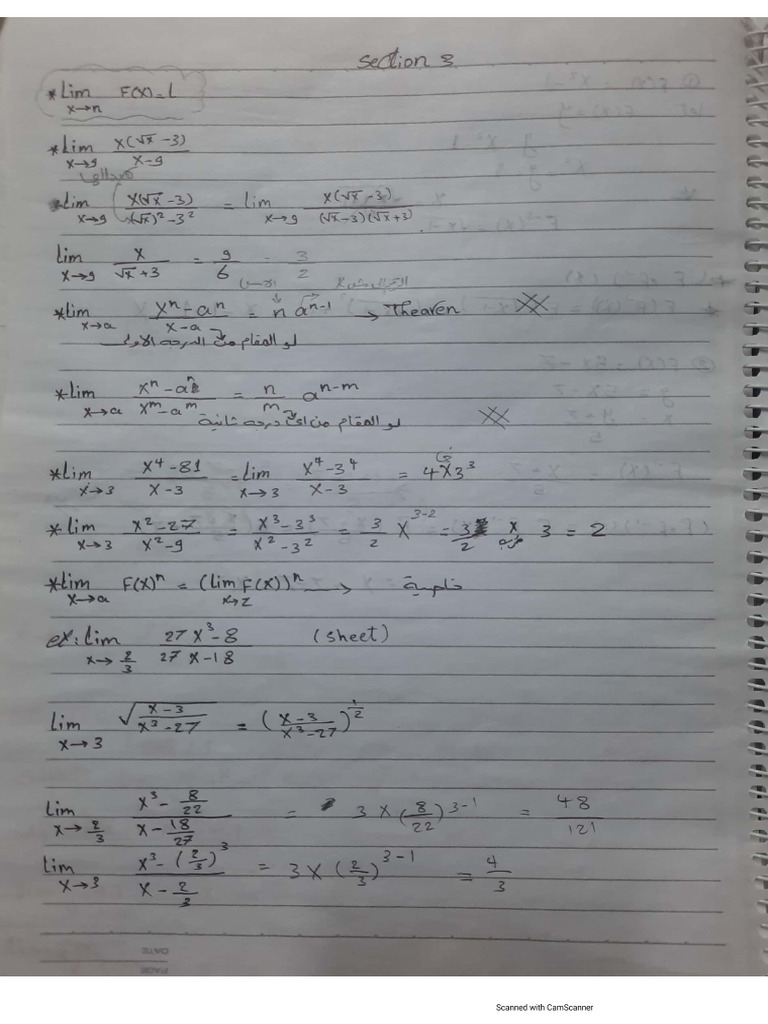 Section 3
* Lim x→n F(x) = L
* Lim x→9 x(√x - 3) / x-9
Lim x→9 x(√x - 3) / (√x)² - 3² = Lim x→9 x(√x - 3) / (√x - 3)(√x + 3)
Lim x→9 x / √x + 3 = 9/6 = 3/2
* Lim x→a xⁿ - aⁿ / x - a = n aⁿ⁻¹ → Theaven
لو المقام من الدرجه الاولى
* Lim x→a xⁿ - aⁿ / xᵐ - aᵐ = n/m aⁿ⁻ᵐ
لو المقام من اى درجه ثانية
* Lim x→3 x⁴ - 81 / x - 3 = Lim x→3 x⁴ - 3⁴ / x - 3 = 4x3³
* Lim x→3 x² - 27 / x² - 9 = x³ - 3³ / x² - 3² = 3/2 x³⁻² = 3/2 x 3 = 2
* Lim x→a F(x)ⁿ = (Lim x→2 F(x))ⁿ → خاصية
ex: Lim x→2/3 27x³ - 8 / 27x - 18 (sheet)
Lim x→3 √(x - 3 / x³ - 27) = (x - 3 / x³ - 27)^1/2
Lim x→2/3 x³ - 8/22 / x - 18/27 = 3 x (8/22)³⁻¹ = 48/121
Lim x→3 x³ - (2/3)³ / x - 2/3 = 3 x (2/3)³⁻¹ = 4/3
DATE
PAGE
Scanned with CamScanner